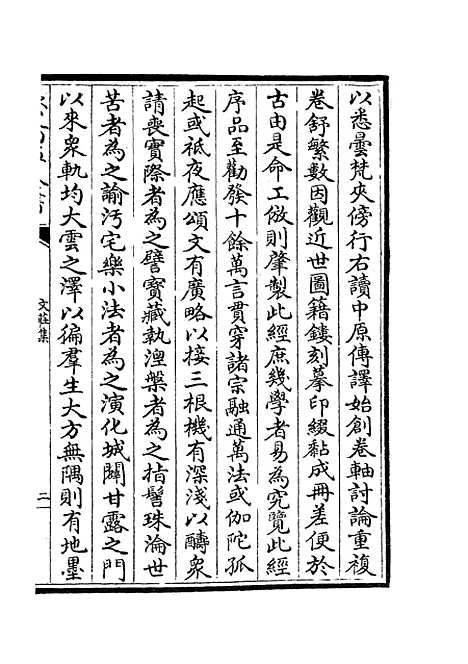 以悉曇梵夾傍行右讀中原傳譯始創卷軸討論重複
卷舒繁數因觀近世圖籍鏤刻摹印綴黏成冊差便於
古由是命工倣則肇製此經庶幾學者易為究覽此經
序品至勸發十餘萬言貫穿諸宗融通萬法或伽陀孤
起或祗夜應頌文有廣略以接三根機有深淺以疇衆
請喪寶際者為之譬寳藏執湼槃者為之指髻珠淪世
苦者為之諭汚宅樂小法者為之演化城闢甘露之門
以來衆軌均大雲之澤以徧羣生大方無隅則有地墨
文莊集
二